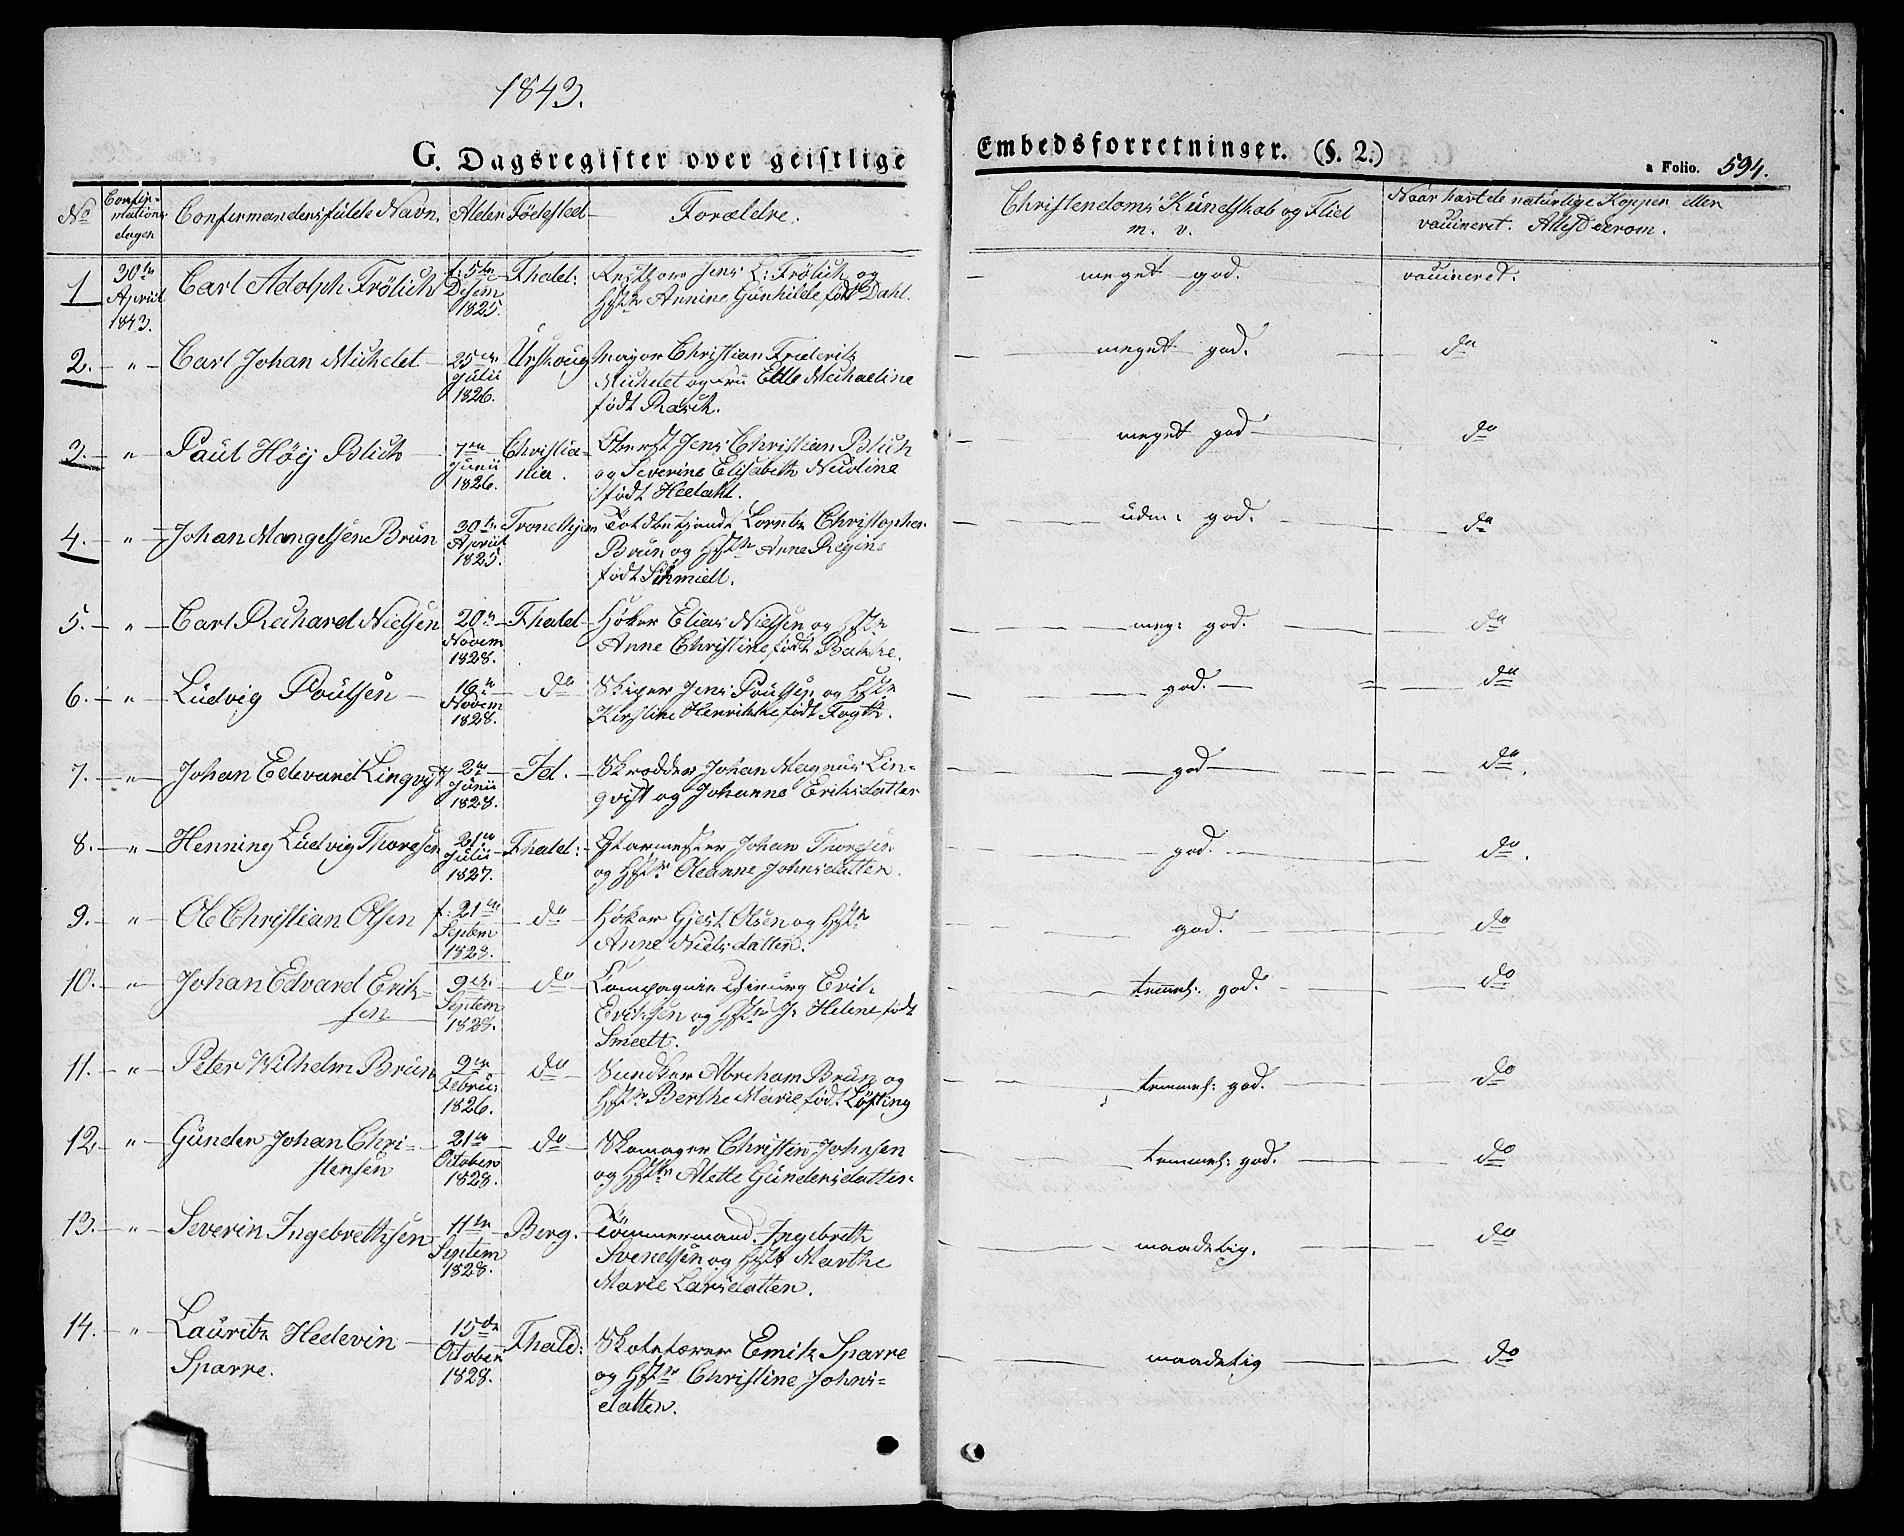 1843.
G. Dagsregister over geistlige
Embedsforretninger. (§. 2.)
a Folio. 594.
No Confirmations dagen Confirmandens fulde Navn. Alder Fødested Forældre.
Christendoms Kundskab og Flid m. v.
Naar havt de naturlige Kopper eller vaccineret. Attest derom.
1 30te April 1843. Carl Adolph Frölich f: 5te Desem 1825. Fhald: Jens L: Frölich og
Hstr Annine Gunhilde født Dahl.
meget god. vaccineret.
2. " Carl Johan Michelet 25de Julii 1826. Urskoug Major Christian Frederik
Michelet og Fru Elle Michaeline
født Rasch.
meget god. do
3. " Paul Høij Blich 7de Junii 1826. Christiania. Oberst Jens Christian Blich
og Severine Elisabeth Nicoline
født Heedahl.
meget god do
4. " Johan Mangelsen Brun 30te April 1825. Trondhjem Toldbetjendt Lorntz Christopher
Brun og Hstr Anne Regine
født Schmidt.
udm: god. do
5. " Carl Richard Nielsen 20de Novem 1828. Fhald Høker Elias Nielsen og Hstr
Anne Christine født Bakke.
meg: god. do
6. " Ludvig Poulsen 16de Novem 1828. do Skiper Jens Poulsen og Hstr
Kirstine Henrikke født Fogth.
god. do
7. " Johan Edevard Linqvist 2de Junii 1828. Id. Skredder Johan Magnus Lin-
qvist og Johanne Eriksdatter
god do.
8. " Henning Ludvig Thoresen 21de Julii 1827. Fhald: Johan Thoresen
og Hstr Oleanne Johnsdatter.
god. do.
9. " Ole Christian Olsen f: 21de Septem 1828. do Høker Gjest Olsen og Hstr
Anne Nielsdatter.
god. do
10. " Johan Edvard Erik-
sen 9de Septem 1828. do Compagnie Chirurg Erik
Eriksen og Hstr J. Helene født
Smedt.
temmel: god. do
11. " Peter Wilhelm Brun 9de Febru 1826. do Abraham Brun og
Hstr Berthe Marie fød: Löfting
temmel: god. do
12. " Gunder Johan Chri-
stensen 21de October 1828. do Skomager Christen Johnsen
og Hstr Mette Gundersdatter.
temmel: god. do
13. " Severin Ingebrethsen 11te Septem 1828. Berg. Tømmermand Ingebreth
Svendsen og Hstr Marthe
Marie Larsdatter.
maadelig. do
14. " Lauritz Hedevin
Sparre. 15de October 1828. Fhald: Skolelærer Emik Sparre
og Hstr Christine Johns-
datter.
maadelig do